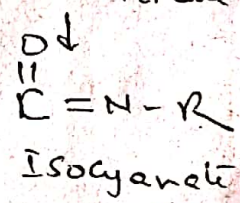 O
||
C = N - R
Isocyanate